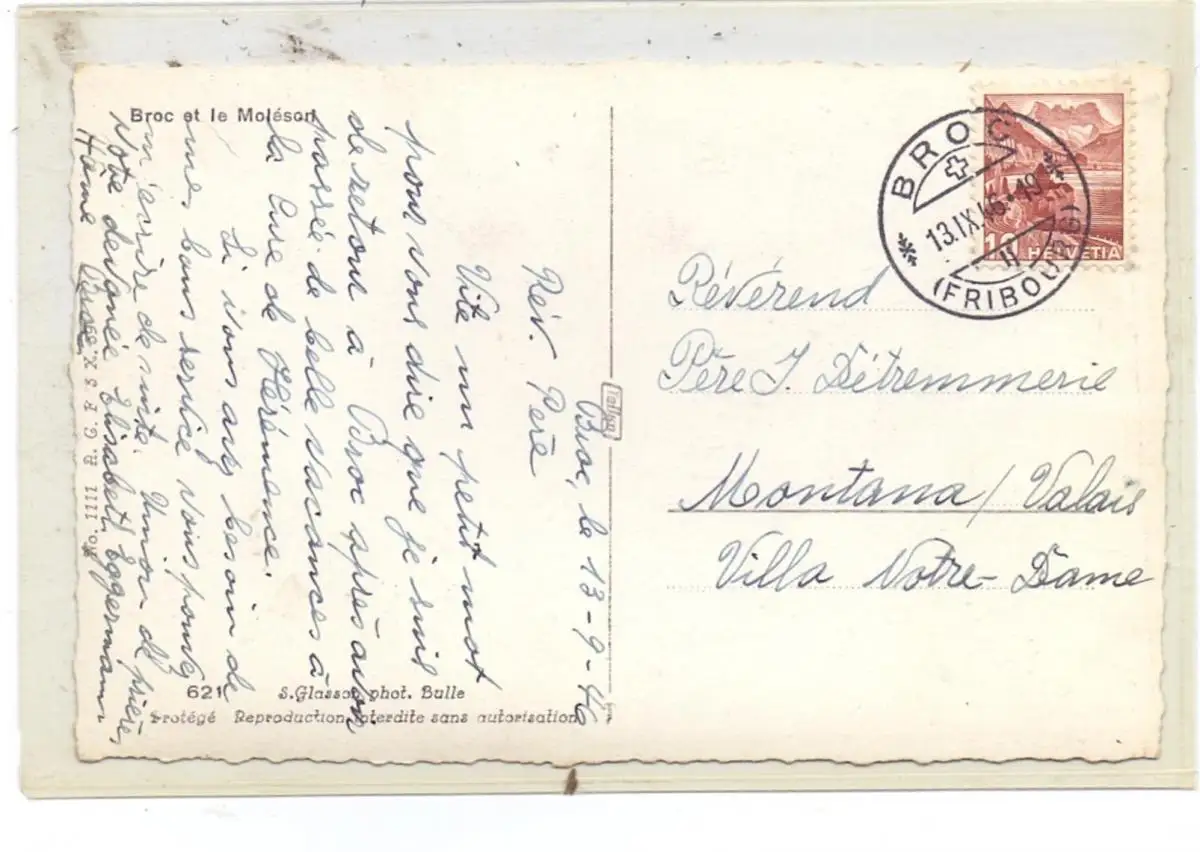 Broc et le Moléson
Broc, le 13-9-46
Rév. Père
Vite un petit mot
pour vous dire que je suis
de retour à Broc après avoir
passée de belle vacances à
la Cure de Hérémence.
Si vous avez besoin de
mes bons service vous pouvez
m'écrire de suite. Union de prière,
Votre dévouée Elisabeth Eggermann
Home
621 S. Glasson phot. Bulle
Protégé Reproduction interdite sans autorisation
No. 1111 A. G. F. S. X. 39
BROC
13.IX.46.-19
II
(FRIBOURG)
10 HELVETIA
Révérend
Père J. Détremmerie
Montana / Valais
Villa Notre-Dame